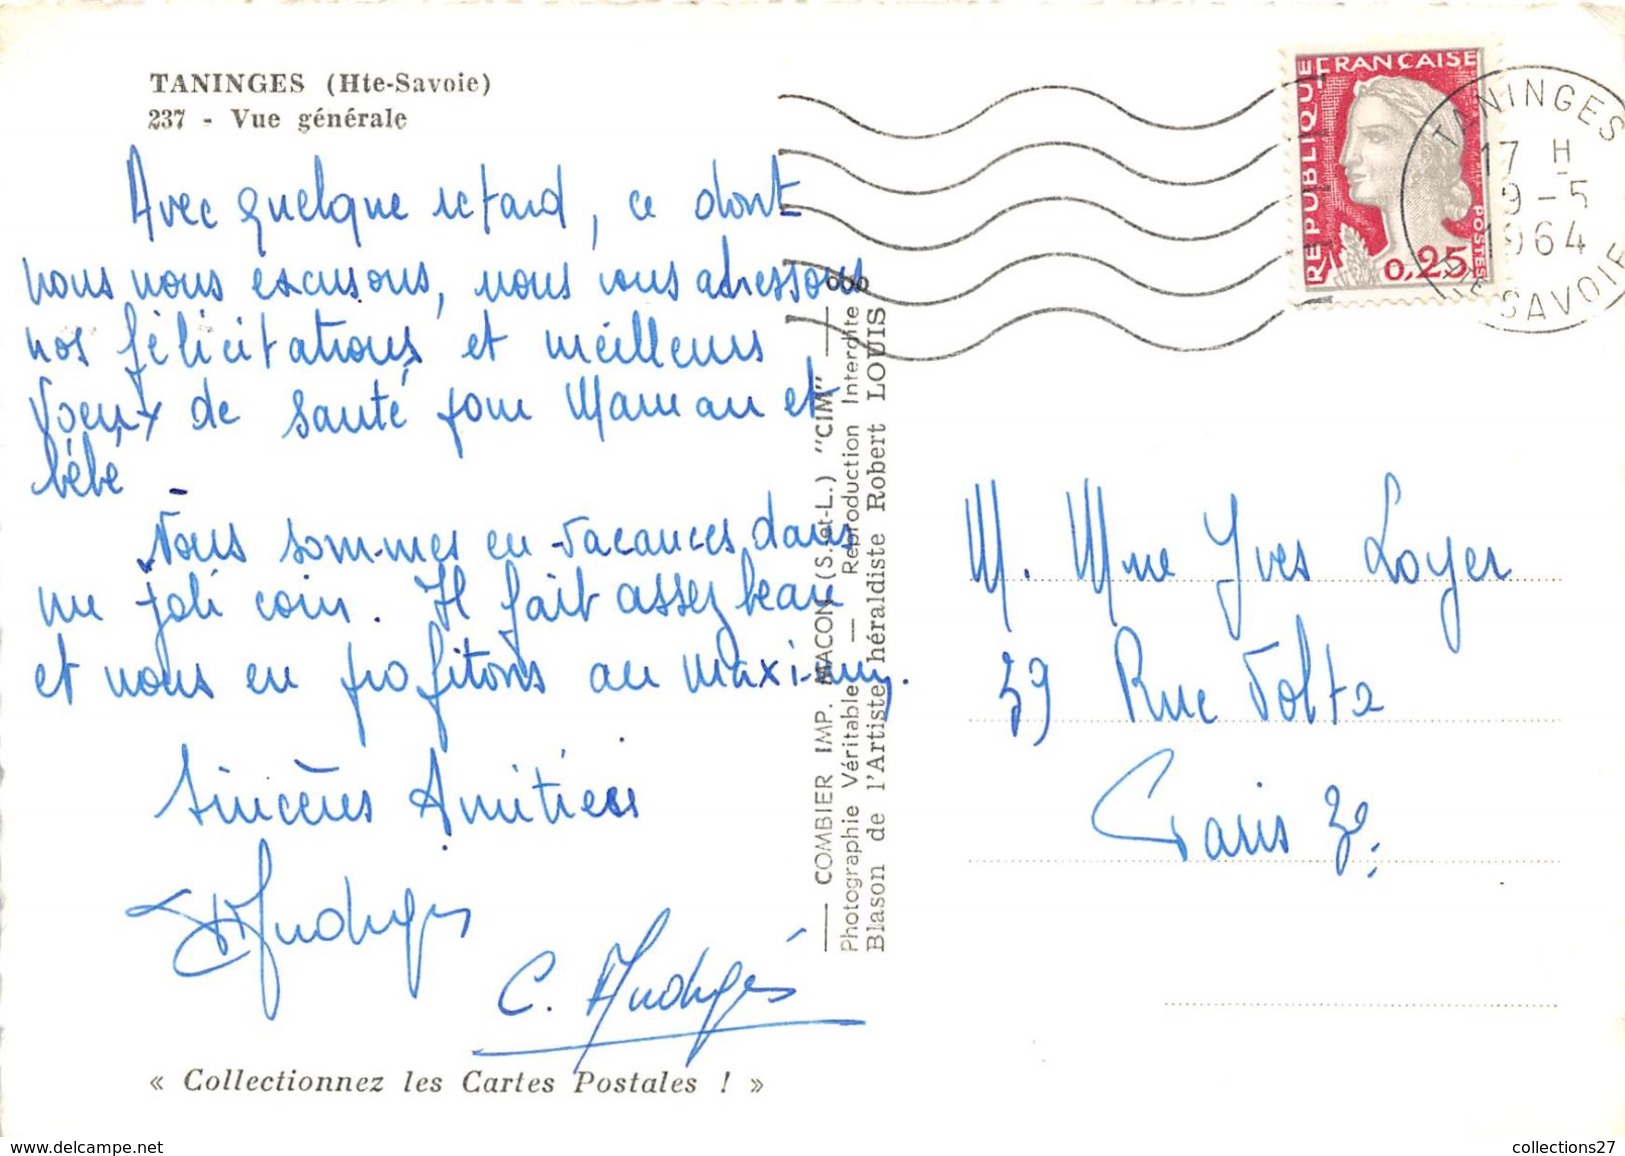 TANINGES (Hte-Savoie)
237 - Vue générale
Avec quelque retard, ce dont
nous nous excusons, nous vous adressons
nos félicitations et meilleurs
Vœux de santé pour Maman et
bébé
Nous sommes en vacances dans
un joli coin. Il fait assez beau
et nous en profitons au maximum.
Sincères Amitiés
C.
« Collectionnez les Cartes Postales ! »
COMBIER IMP. MACON (S.-et-L.) "CIM"
Photographie Véritable — Reproduction Interdite
Blason de l'Artiste héraldiste Robert LOUIS
REPUBLIQUE FRANÇAISE
POSTES
0,25
TANINGES
17 H
9-5
1964
HTE SAVOIE
M. Mme Yves Loyer
39 Rue Volta
Paris 3e.
collections27